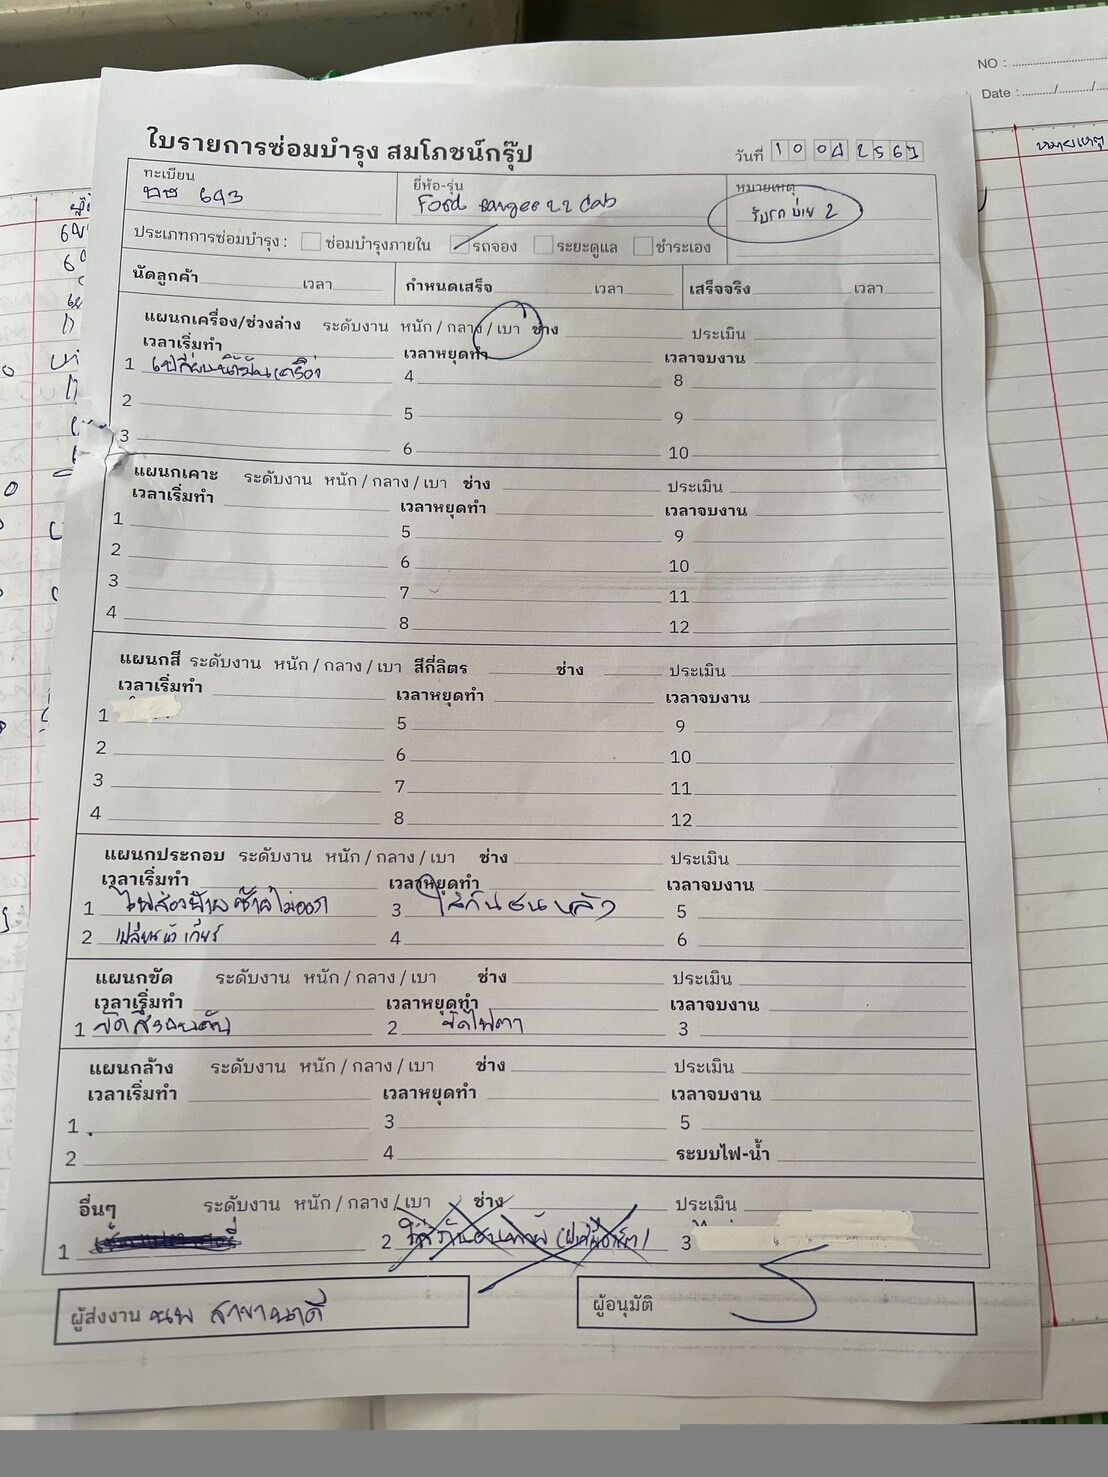 NO :
Date : / /
หมายเหตุ
ใบรายการซ่อมบำรุง สมโภชน์กรุ๊ป
วันที่ 10 04 2567
ทะเบียน
693
ยี่ห้อ-รุ่น
Ford ranger 22 cab
หมายเหตุ
รับรถ บ่าย 2
ประเภทการซ่อมบำรุง : ซ่อมบำรุงภายใน รถจอง ระยะดูแล ชำระเอง
นัดลูกค้า เวลา กำหนดเสร็จ เวลา เสร็จจริง เวลา
แผนกเครื่อง/ช่วงล่าง ระดับงาน หนัก / กลาง / เบา ช่าง ประเมิน
เวลาเริ่มทำ เวลาหยุดทำ เวลาจบงาน
1 เปลี่ยนน้ำมันเครื่อง 4 8
2 5 9
3 6 10
แผนกเคาะ ระดับงาน หนัก / กลาง / เบา ช่าง ประเมิน
เวลาเริ่มทำ เวลาหยุดทำ เวลาจบงาน
1 5 9
2 6 10
3 7 11
4 8 12
แผนกสี ระดับงาน หนัก / กลาง / เบา สีกี่ลิตร ช่าง ประเมิน
เวลาเริ่มทำ เวลาหยุดทำ เวลาจบงาน
1 5 9
2 6 10
3 7 11
4 8 12
แผนกประกอบ ระดับงาน หนัก / กลาง / เบา ช่าง ประเมิน
เวลาเริ่มทำ เวลาหยุดทำ เวลาจบงาน
1 ไฟส่องป้ายซ้ายไม่ออก 3 ใส่กันชนหลัง 5
2 เปลี่ยนหัวเกียร์ 4 6
แผนกขัด ระดับงาน หนัก / กลาง / เบา ช่าง ประเมิน
เวลาเริ่มทำ เวลาหยุดทำ เวลาจบงาน
1 ขัดสีรอบคัน 2 ขัดไฟตา 3
แผนกล้าง ระดับงาน หนัก / กลาง / เบา ช่าง ประเมิน
เวลาเริ่มทำ เวลาหยุดทำ เวลาจบงาน
1 3 5
2 4 ระบบไฟ-น้ำ
อื่นๆ ระดับงาน หนัก / กลาง / เบา ช่าง ประเมิน
1 2 3
ผู้ส่งงาน นพ สาขานาดี
ผู้อนุมัติ